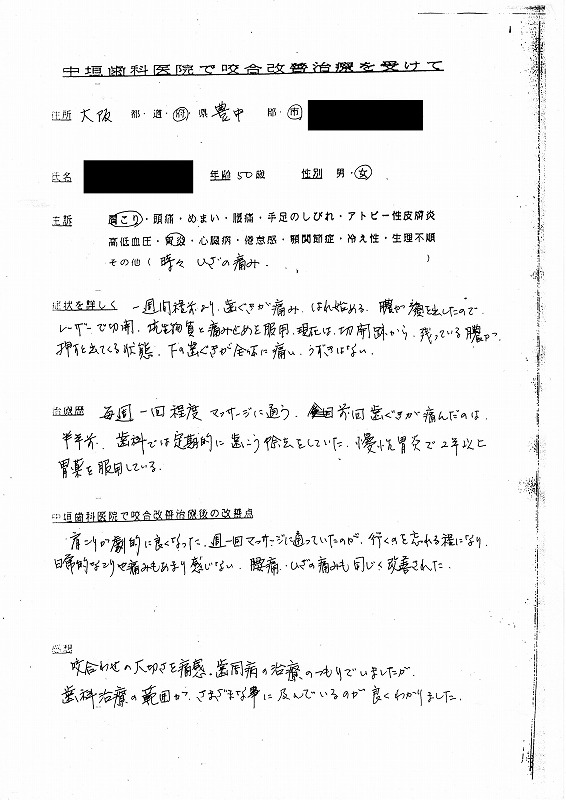 中垣歯科医院で咬合改善治療を受けて
住所 大阪 都・道・府・県 豊中 郡・市
氏名 年齢 50歳 性別 男・女
主訴 肩こり・頭痛・めまい・腰痛・手足のしびれ・アトピー性皮膚炎
高低血圧・胃炎・心臓病・倦怠感・顎関節症・冷え性・生理不順
その他（ 時々 ひざの痛み. ）
症状を詳しく 一週間程前より、歯ぐきが痛み、はれ始める。膿が 出したので
レーザーで切開、抗生物質と痛み止めを服用。現在は、切開跡から、残っている膿が
押すと出てくる状態。下の歯ぐきが全体に痛い。うずきはない。
治療歴 毎週一回程度 マッサージに通う。前回歯ぐきが痛んだのは、
半年前、歯科では定期的に歯こう除去をしていた。慢性胃炎で2年以上
胃薬を服用している。
中垣歯科医院で咬合改善治療後の改善点
肩こりが劇的に良くなった。週一回マッサージに通っていたのが、行くのを忘れる程になり、
日常的なこりや痛みもあまり感じない。腰痛・ひざの痛みも同じく改善された。
感想
咬合わせの大切さを痛感。歯周病の治療のつもりでいましたが、
歯科治療の範囲が、さまざまな事に及んでいるのが良くわかりました。